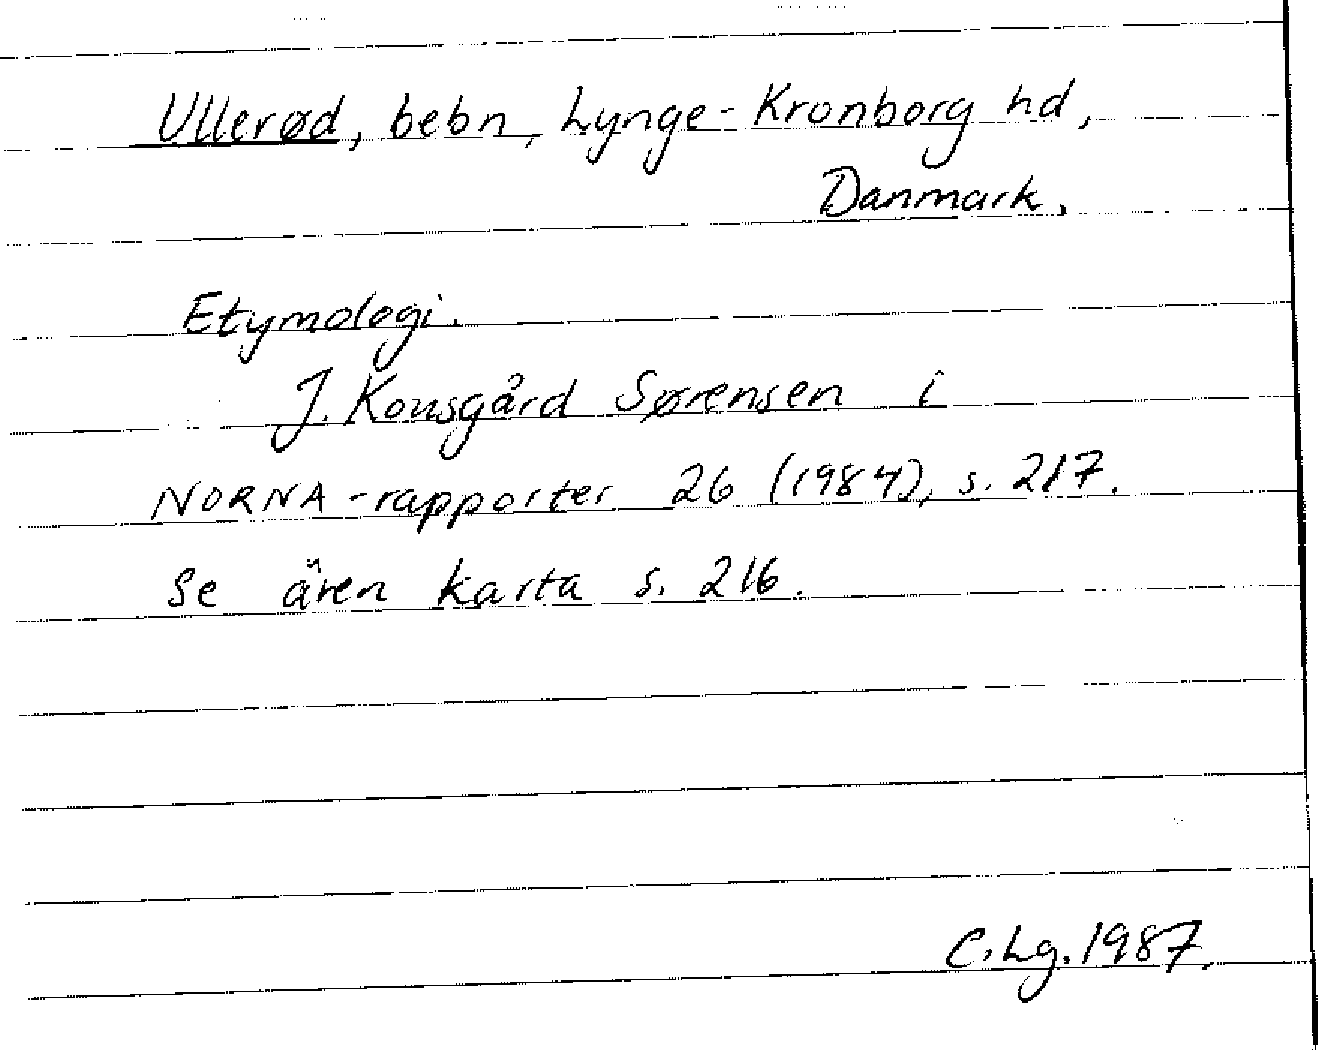 Ullerød, bebn, Lynge-Kronborg hd,
Danmark.
Etymologi.
J. Kousgård Sørensen i
NORNA-rapporter 26 (1984), s. 217.
Se även karta s. 216.
C. Lg. 1987.